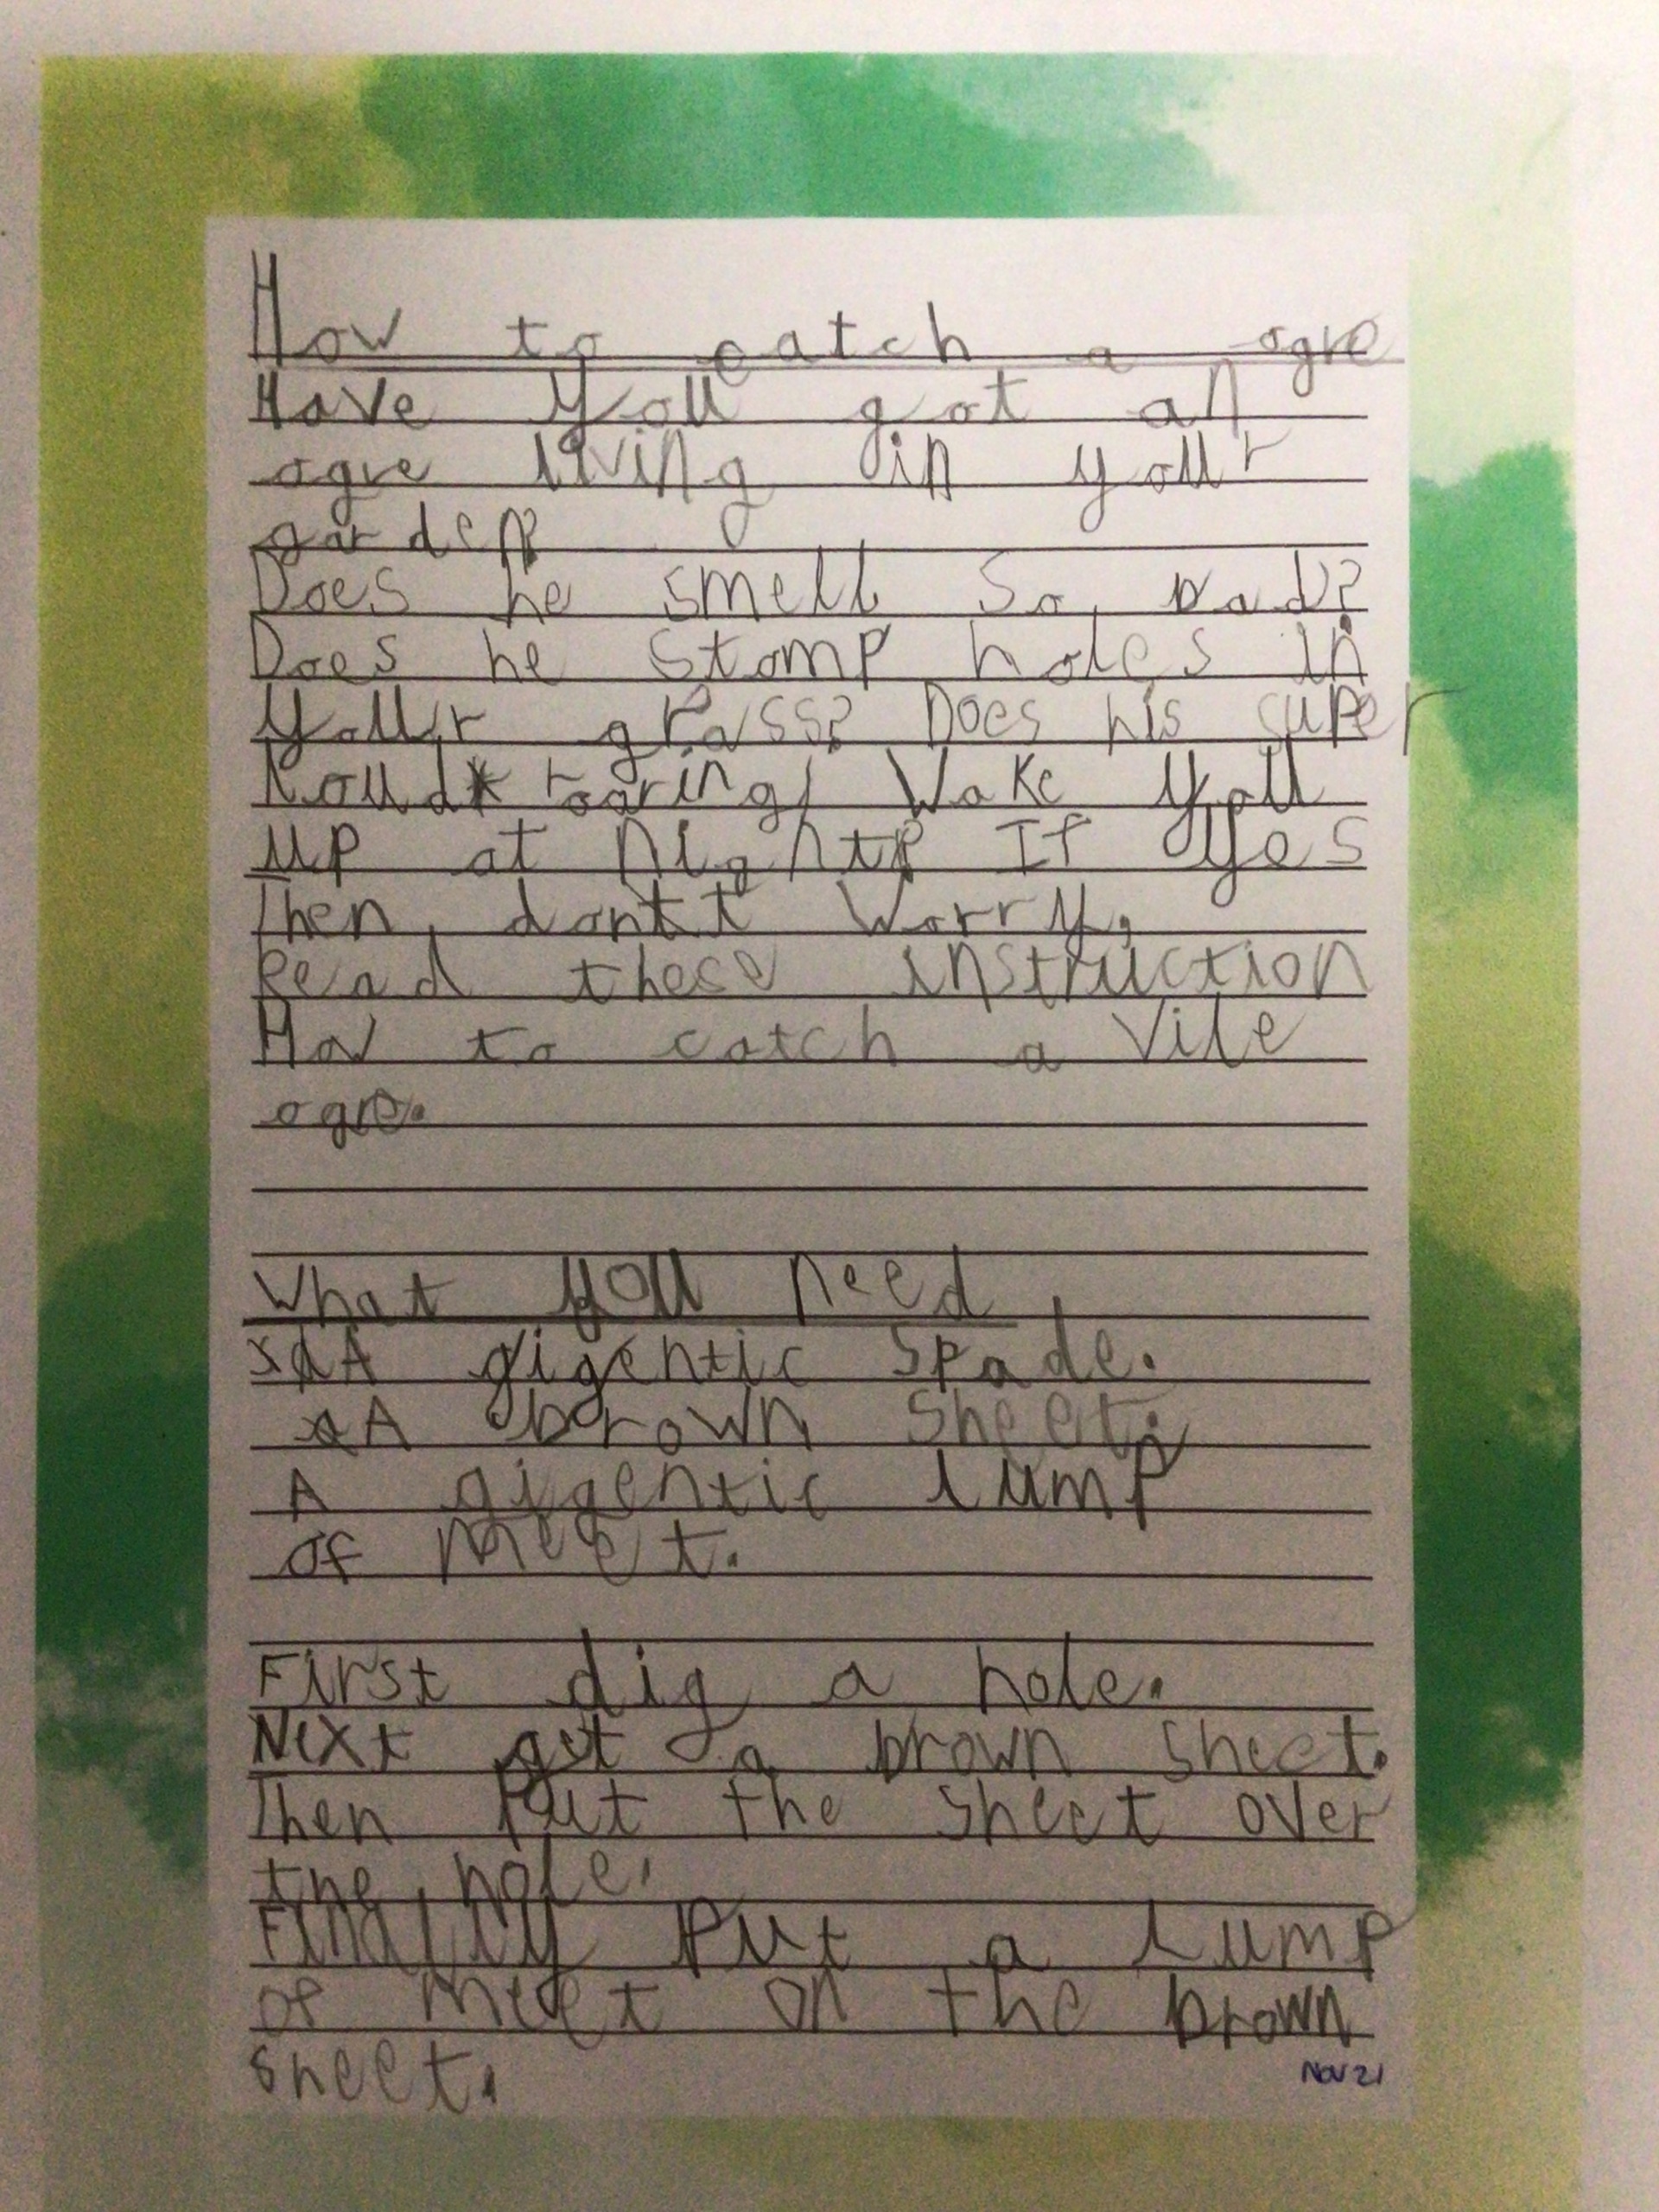 How to catch a ogre
Have you got an
ogre living in your
garden?
Does he smell so bad?
Does he stomp holes in
your grass? Does his super
loud roaring wake you
up at night? If yes
Then don't worry.
Read these instruction
How to catch a vile
ogre.
What you need
A gigentic spade.
A brown sheet.
A gigentic lump
of meet.
First dig a hole.
Next get a brown sheet.
Then put the sheet over
the hole.
Finally put a lump
of meet on the brown
sheet.
Nov 21